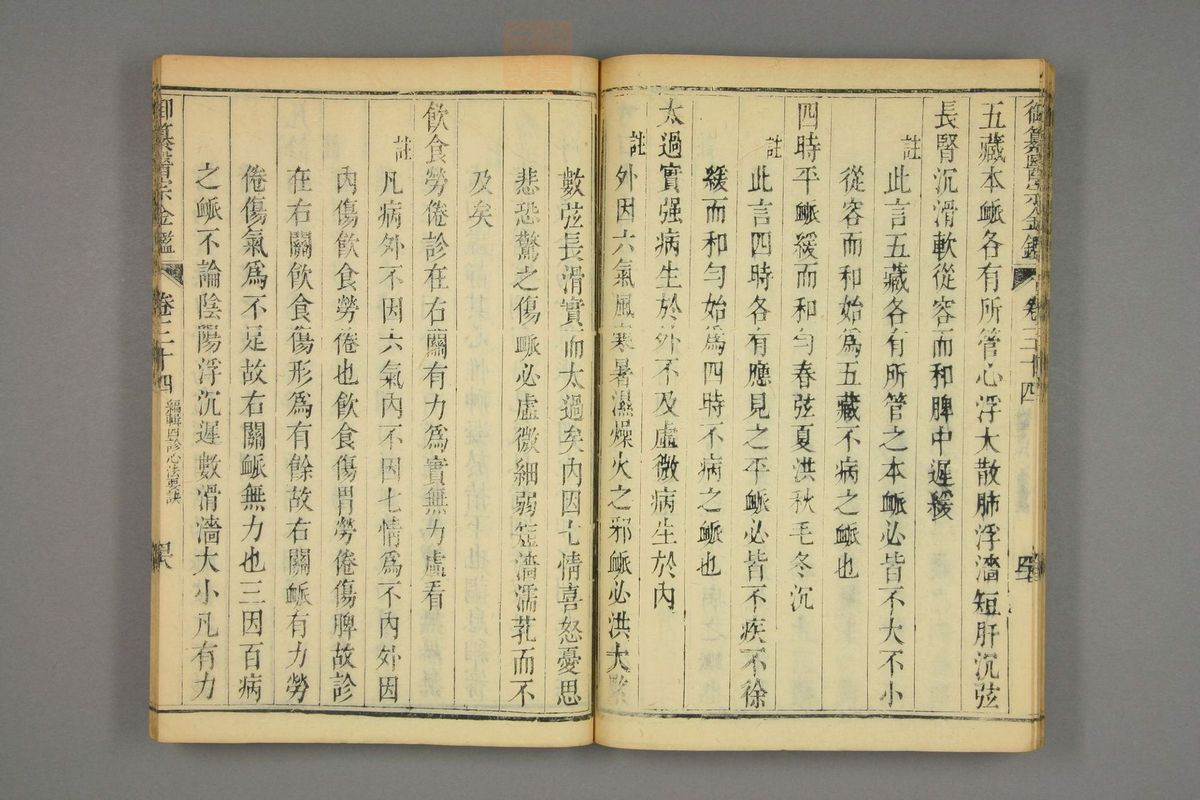 御纂醫宗金鑑 卷三十四
五藏本𧖴各有所管心浮大散肺浮濇短肝沉弦
長腎沉滑軟從容而和脾中遲緩
註此言五藏各有所管之本𧖴必皆不大不小
從容而和始爲五藏不病之𧖴也
四時平𧖴緩而和匀春弦夏洪秋毛冬沉
註此言四時各有應見之平𧖴必皆不疾不徐
緩而和匀始爲四時不病之𧖴也
太過實强病生於外不及虛微病生於內
註外因六氣風寒暑濕燥火之邪𧖴必洪大緊
數弦長滑實而太過矣內因七情喜怒憂思
悲恐驚之傷𧖴必虛微細弱短濇濡芤而不
及矣
飲食勞倦診在右關有力爲實無力虛看
註凡病外不因六氣內不因七情爲不內外因
內傷飲食勞倦也飲食傷胃勞倦傷脾故診
在右關飲食傷形爲有餘故右關𧖴有力勞
倦傷氣爲不足故右關𧖴無力也三因百病
之𧖴不論陰陽浮沉遲數滑濇大小凡有力
御纂醫宗金鑑 卷三十四 編輯四診心法要訣